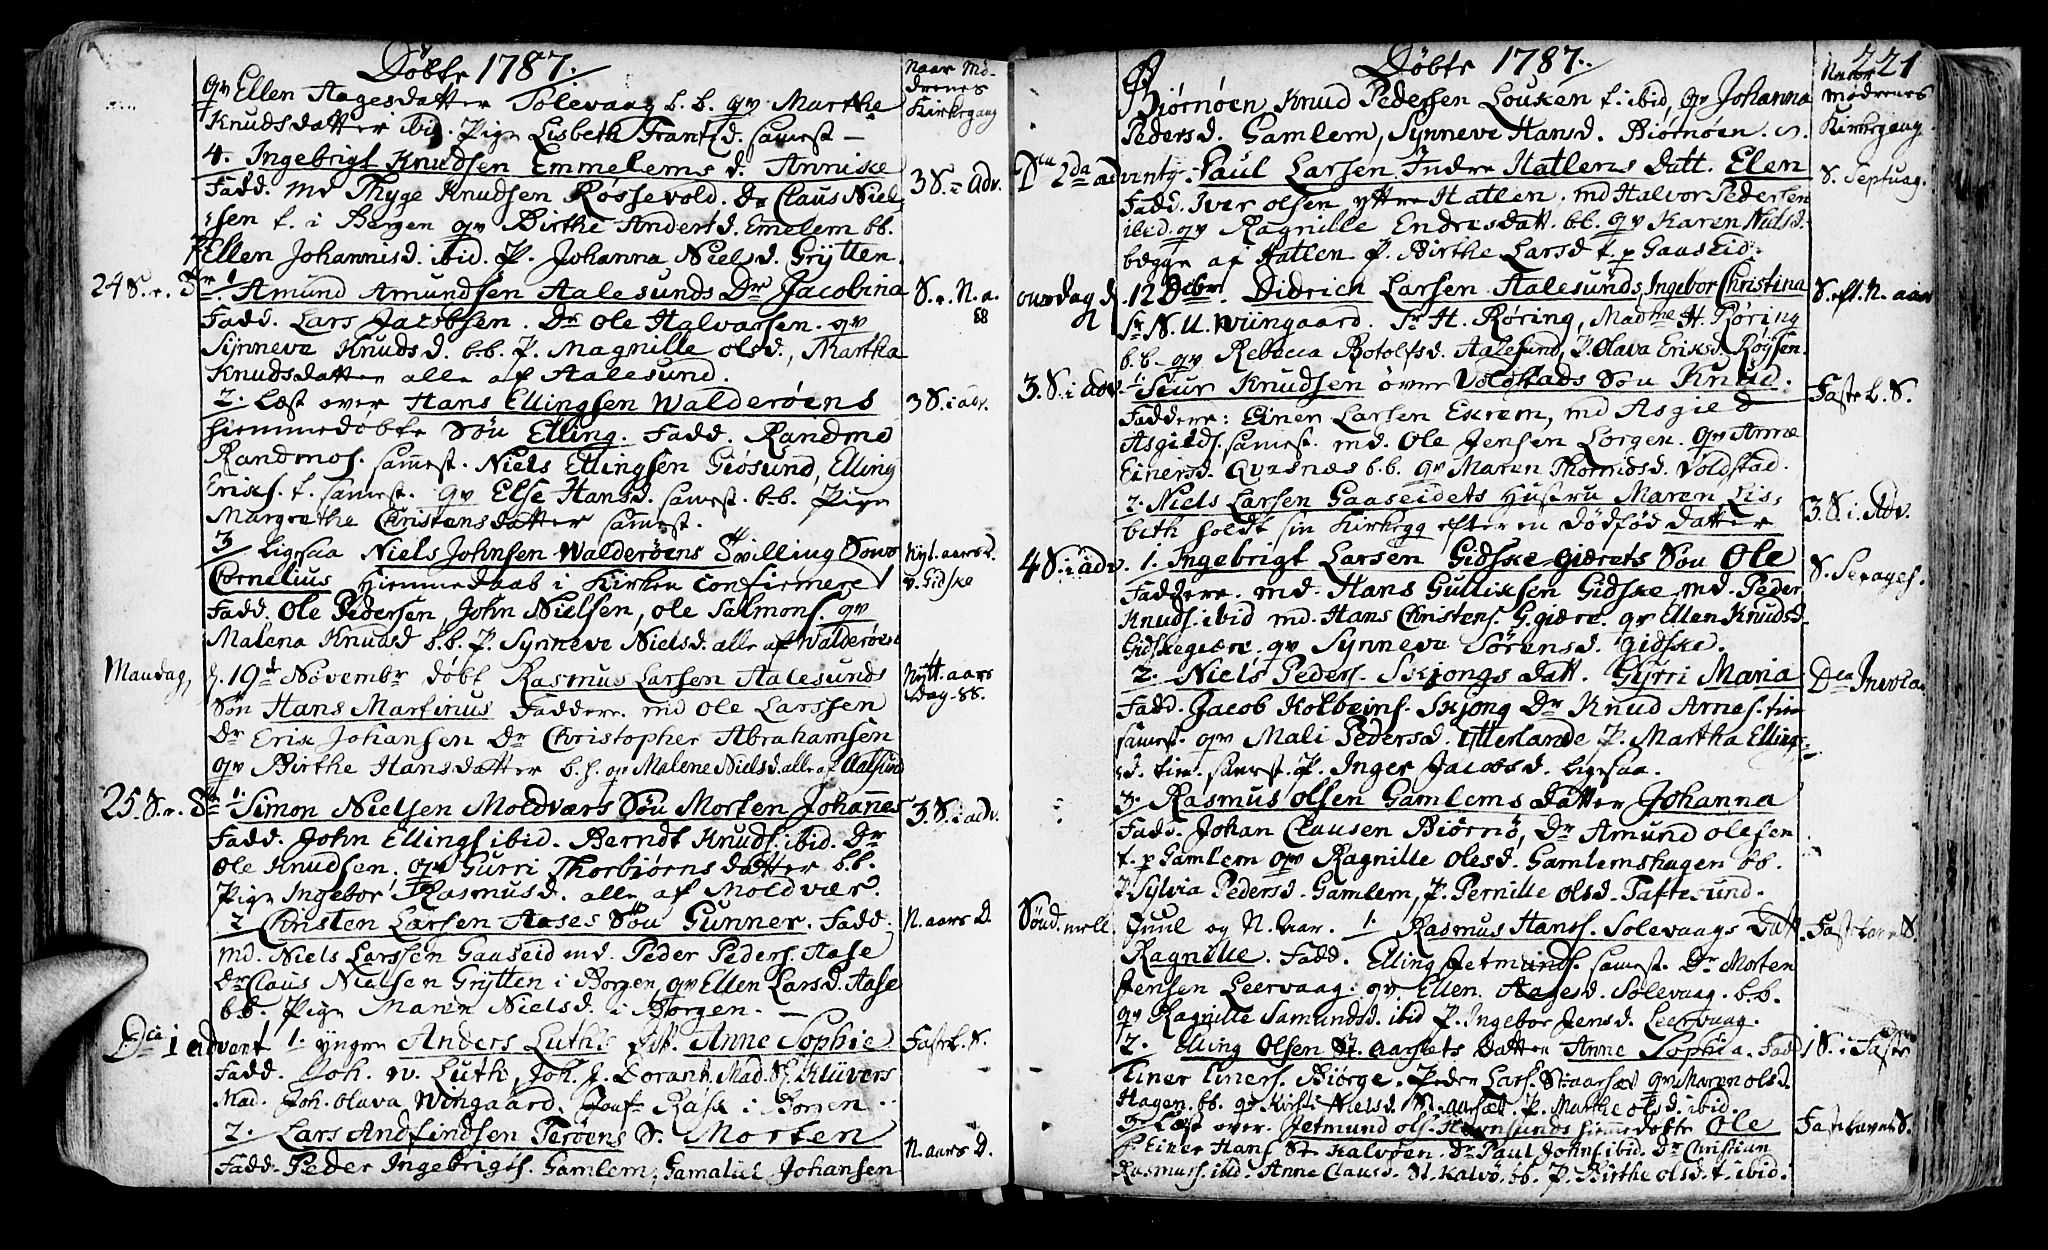 Döbte 1787.
Naar Mö-
drenes
Kirkegang
qv Ellen Aagesdatter Solevaag b.b. qv. Marthe
Knudsdatter ibid. Pige Lisbeth Frantzd. samest —
4. Ingebrigt Knudsen Emmelems d. Annike
3 S. i Adv.
Fadd. Md Thyge Knudsen Røssevold. Dr Claus Niel,
:sen t. i Borgen qv Birthe Andersd. Emelem bb.
P. Ellen Johannisd. ibid. P. Johanna Nielsd. Grÿtten.
24 S. e. 3n 1. Amund Amundsen Aalesunds Dr Jacobina
S. e. N. a.
88
Fadd. Lars Jacobsen. Dr Ole Halvorsen. qv
Sÿnneve Knudsd. b.b. P. Magnille olsd., Martha
Knudsdatter alle af Aalesund.
2. Læst over Hans Ellingsen Walderöens
3 S. i adv.
hiemmedöbte Sön Elling. Fadd. Randmo
Randmos. samest. Niels Ellingsen Giösund, Elling
Eriks. t. samest. qv Else Hansd. samest. b.b. Pige
Margrethe Christensdatter samest.
3 Ligesaa Niels Johnsen Walderöens Tvilling Sons
Nyt. aars D.
v. Gidske
Cornelius hiemmedaab i Kirken confirmeret
Fadd. Ole Pedersen, John Nielsen, Ole Salmons. qv
Malena Knudsd b.b. P. Synneve Nielsd. alle af Walderöen
Mandag, d. 19d Novembr döbt Rasmus Larsen Aalesunds
Nytt. aars
dag. 88.
Sön Hans Martinus Faddere. md Ole Larssen
Dr Erik Johansen Dr Christopher Abrahamsen
qv Birthe Hansdatter b.h. qv Malene Nielsd. alle af Aalsund
25. S. e. 3n 1. Simon Nielsen Moldværs Sön Morten Johannes
3. S. i adv.
Fadd. John Ellings. ibid. Berndt Knuds. ibid. Dr
Ole Knudsen. qv Gurri Thorbiörnsdatter b.b.
Pige Ingebor Rasmusd. alle af Moldvær.
2 Christen Larsen Aases Sön Gunner. Fadd.
N. aars D.
md. Niels Larssen Gaaseid md. Peder Peders. Aase
Dr Claus Nielsen Grÿtten i Borgen, qv Ellen Larsd. Aase
b.b. Pige Maren Nielsd. i Borgen. —
Dca 1 advent 1. yngre Anders Luths Datt. Anne Sophie
Fastel. S.
Fadd. Joh. W. Luth, Joh. J. Dorant, Mad. Klüvers
Mad. Joh. Olava Wingaard. Jomfr Rask i Borgen.
2. Lars Andfindsen Terøens S. Morten
N. aars D.
Fadd. Peder Ingebrigts. Gamlem, Gamaliel Johansen
Döbte 1787.
221
Naar
Mödrenes
Kirkegang.
Biørnøen Knud Pedersen Louken t. ibid, qv Johanna
Pedersd. Gamlem, Synneve Hansd. Biørnøen
Dca 2da adventg. Paul Larsen Indre Hatlens Datt. Elen
S. Septuag.
Fadd. Iver olsen yttre Hatlen. md Halvor Pedersen
ibid. qv Ragnille Endresdatt. bb. qv Karen Nielsd.
begge af Hatlen. P. Birthe Larsd t. p Gaaseid.
onsdag d. 12 Decbr. Didrich Larsen Aalesunds, Ingebor Christina
S. eft. N. aar
Sr N. U. Wiingaard. Sr H. Røring, Madme H. Røring
b.b. qv Rebecca Botolfsd. Aalesund, P. Olava Eriksd. Røysen.
3. S. i adv. 1. Siur Knudsen øvre Voldstads Sön Knud.
Fastel. S.
Faddere: Einer Larsen Exrem, md Asgield
Asgields. samest. md. Ole Jensen Lorgen. qv Anne
Einersd. Qvasnæs b.b. qv Maren Thornidsd. Voldstad.
2. Niels Larsen Gaaseidets Hustru Maren Lis,
3. S. i. Adv.
beth holdt sin Kirkegg efter en dödföd datter
4 S. i adv. 1. Ingebrigt Larsen Gidske-giærets Sön Ole
S. Sexages.
Faddere. md. Hans Gulliksen Gidske md. Peder
Knuds. ibid md. Hans Christens. G. giære. qv Ellen Knudsd.
Gidskegiære. qv Synneve Sørensd. Gidske.
2. Niels Peders. Skjongs Datt. Gÿrri Maria
Dca Invoca.
Fadd. Jacob Kolbeins. Skjong Dr Knud Arnes. tien
samest. qv Mali Pedersd. ytterlande P. Martha Elling-
sd. tien. samest. P. Inger Jacobsd. ligesaa.
3. Rasmus olsen Gamlems datter Johanna
Fadd. Johan Clausen Biørnø, Dr Amund olesen
t. p Gamlem qv Ragnille Olesd. Gamlemshagen bb.
P. Sylvia Pedersd. Gamlem, P. Pernille olsd. Taftesund.
Sönd. mell. Juul og N. Aar. 1. Rasmus Hanss. Solevaags Datt.
Fastelavns S.
Ragnille. Fadd. Elling Jetmunds. samest. Dr Morten
Jensen Leervaag. qv. Ellen Aagesd. Solevaag. b.b.
qv Ragnille Samundsd. ibid P. Ingebor Jensd. Leervaag.
2. Elling Olsen St. Aarsets Datter Anne Sophia. Fadd
1 S. i Faste
Einer Einers. Biørge. Peder Lars. St. aarset qv Maren olsd.
Hagen. bb. qv Kirsti Nielsd. St. aarsæt P. Marthe olsd. ibid.
3. Læst over. Jetmund ols. Hevnsunds hiemmedöbte Ole
Fastelavns S.
F. Einer Hans. St. Kalvøen. Dr Paul Johns. ibid. Dr Christian
Rasmuss. ibid. Anne Clausd. St. Kalvø. bb. P. Birthe olsd. t. ibid.